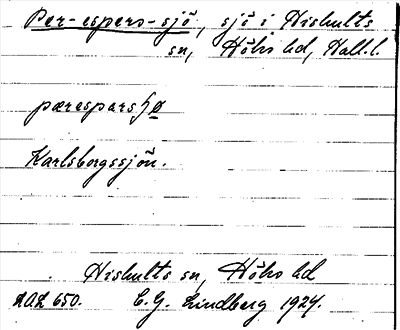 Per-espers-sjö, sjö i Hishults
sn, Höks hd, Hall. l.
pæresparsʃø
Karlsborgssjön.
Hishults sn, Höks hd
E.G. Lindberg 1924.